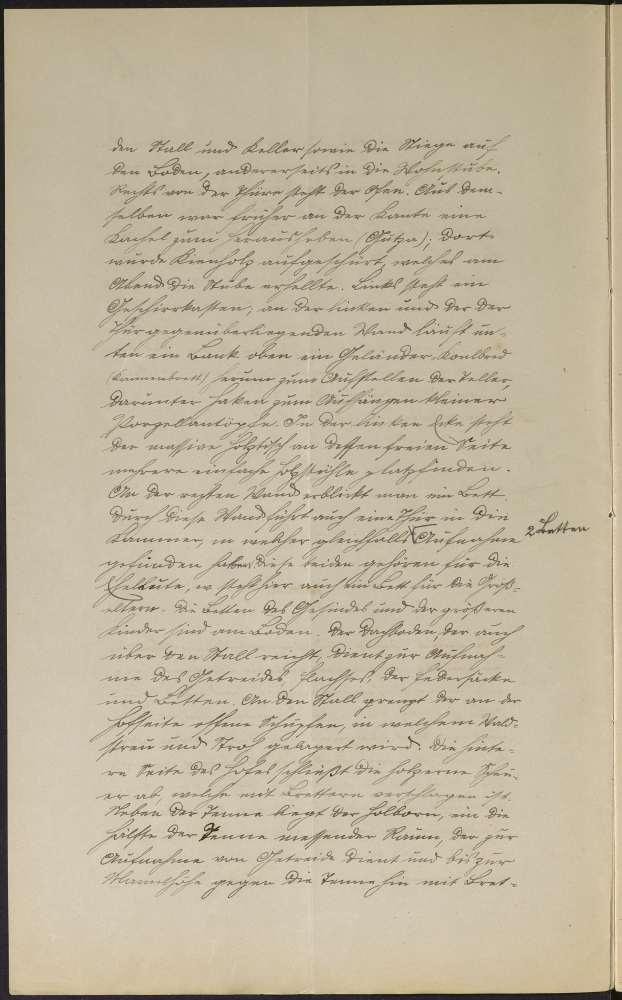 den Stall und Keller sowie die Stiege auf
den Boden, andererseits in die Wohnstube.
Rechts von der Thüre steht der Ofen. Aus dem-
selben war früher an der Kante eine
Kachel zum herausheben (Gutza); dort
wurde Kienholz aufgeschürt, welches am
Abend die Stube erhellte. Links steht ein
Geschirrkasten, an der linken und der der
Thür gegenüberliegenden Wand läuft un-
ten ein Bank oben ein Geländer,
(Kannenbrett) herum zum Aufstellen der Teller,
darunter Haken zum Aufhängen kleiner
Porzellantöpfe. In der linken Ecke steht
der massive Holztisch an dessen freien Seite
mehrere einfache Holzstühle platzfinden.
An der rechten Wand erblickt man ein Bett.
Durch diese Wand führt auch eine Thür in die
Kammer, in welcher gleichfalls 2 Betten Aufnahme
gefunden haben. Diese beiden gehören für die
Eheleute, steht hier auch ein Bett für die Groß-
eltern. Die Betten des Gesindes und der größeren
Kinder sind am Boden. Der Dachboden, der auch
über den Stall reicht, dient zur Aufnah-
me des Getreides, Flachses, der Federsäcke
und Betten. An den Stall grenzt der an der
Hofseite offene Schupfen, in welchem Wald-
streu und Stroh gelagert wird. Die hinte-
re Seite des Hofes schließt die hölzerne Scheu-
er ab, welche mit Brettern verschlagen ist.
Neben der Tenne liegt der Holborn, ein die
Hälfte der Tenne messender Raum, der zur
Aufnahme von Getreide dient und bis zur
Manneshöhe gegen die Tenne hin mit Bret-